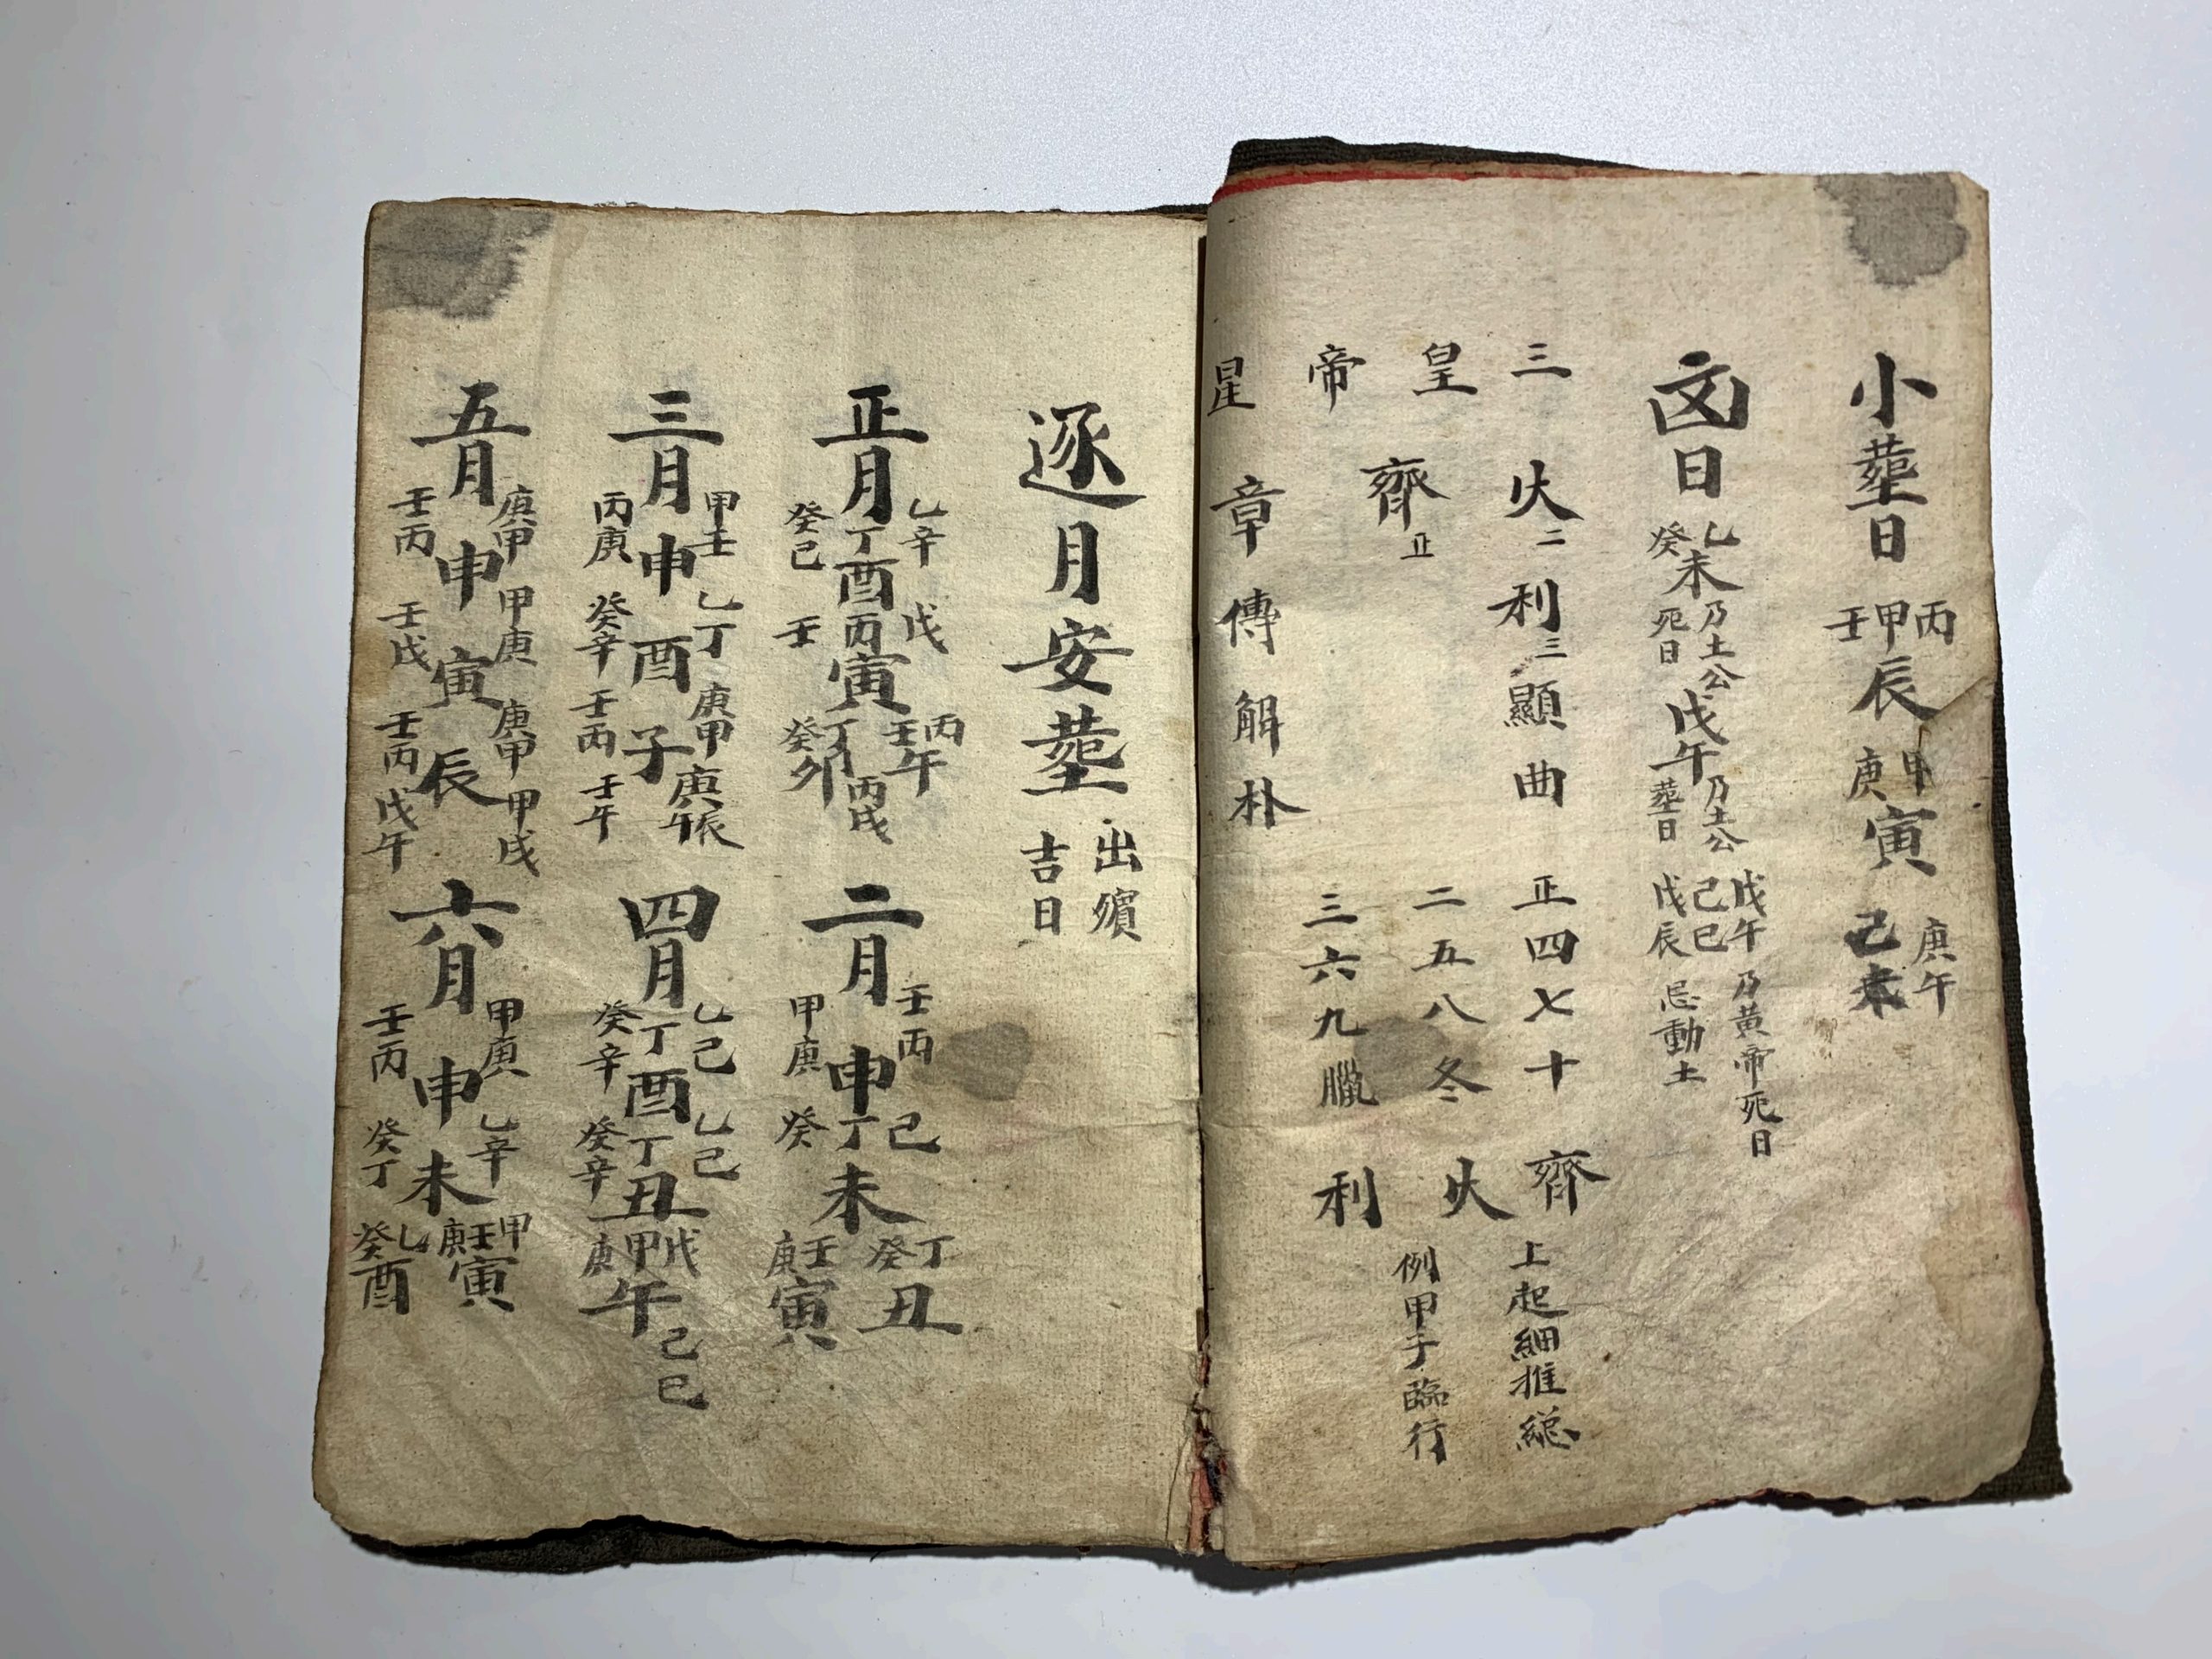 小塟日 丙甲壬辰 甲庚寅 庚午 己未
凶日 乙癸未 乃土公死日 戊午 乃土公塟日 戊午 己巳 戊辰 乃黃帝死日 忌動土
三 火二 利三 顯曲 正四七十 齊 上起細推総
皇 二五八冬 火 例甲子臨行
帝 齊正 三六九臘 利
星 章傳解朴
逐月安塟 出殯吉日
正月 乙辛丁癸己酉 戊丙壬寅 丙壬午 丁癸卯 丙戌 二月 壬丙甲庚申 己丁癸未 丁癸丑 壬庚寅
三月 甲壬丙庚申 乙丁癸辛酉 庚甲壬丙子 庚辰 庚午 壬午 四月 乙己丁癸辛酉 乙己丁癸辛丑 戊甲庚午 己巳
五月 庚甲壬丙申 甲庚壬戊寅 庚甲壬丙辰 甲戌 戊午 六月 甲庚壬丙申 乙辛癸丁未 甲壬庚寅 乙癸酉